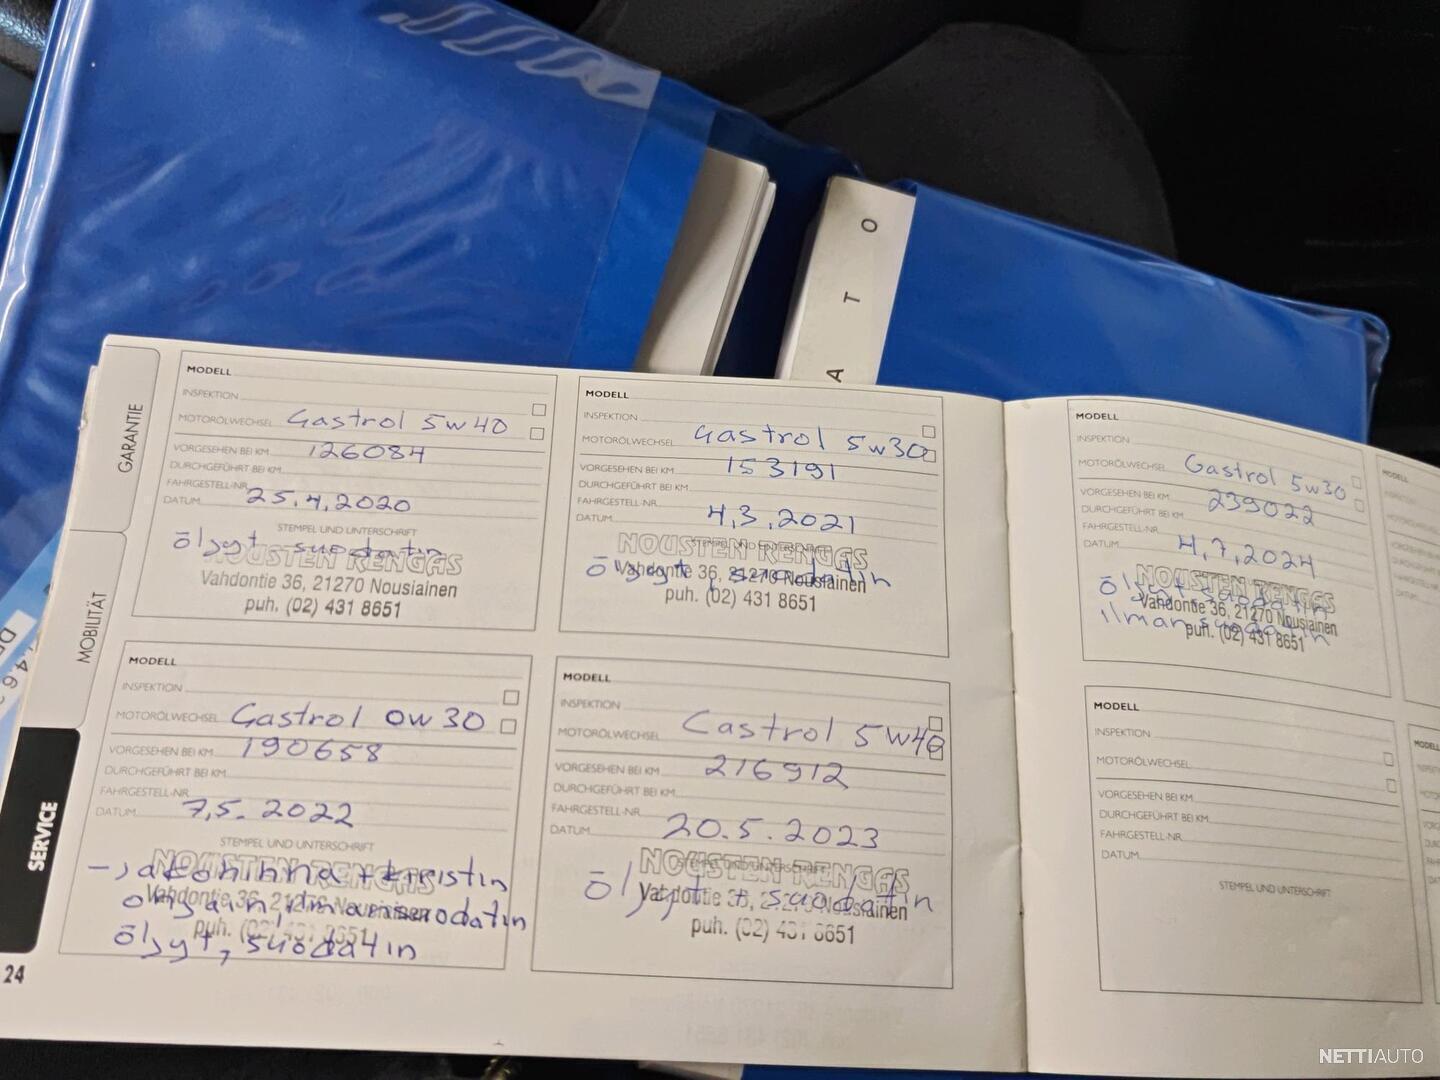 O
T
A
GARANTIE
MOBILITÄT
SERVICE
MODELL
INSPEKTION
MOTORÖLWECHSEL Castrol 5w40
VORGESEHEN BEI KM 126084
DURCHGEFÜHRT BEI KM
FAHRGESTELL-NR.
DATUM 25.4.2020
STEMPEL UND UNTERSCHRIFT
öljyt suodatin
NOUSTEN RENGAS
Vahdontie 36, 21270 Nousiainen
puh. (02) 431 8651
MODELL
INSPEKTION
MOTORÖLWECHSEL Castrol 5w30
VORGESEHEN BEI KM 153191
DURCHGEFÜHRT BEI KM
FAHRGESTELL-NR.
DATUM 4.3.2021
STEMPEL UND UNTERSCHRIFT
NOUSTEN RENGAS
öljyt, suodatin
Vahdontie 36, 21270 Nousiainen
puh. (02) 431 8651
MODELL
INSPEKTION
MOTORÖLWECHSEL Castrol 5w30
VORGESEHEN BEI KM 239022
DURCHGEFÜHRT BEI KM
FAHRGESTELL-NR.
DATUM 4.7.2024
NOUSTEN RENGAS
öljyt, suodatin
Vahdontie 36, 21270 Nousiainen
ilmansuodatin
puh. (02) 431 8651
MODELL
INSPEKTION
MOTORÖLWECHSEL Castrol 0w30
VORGESEHEN BEI KM 190658
DURCHGEFÜHRT BEI KM
FAHRGESTELL-NR.
DATUM 7.5.2022
STEMPEL UND UNTERSCHRIFT
NOUSTEN RENGAS
jakohihna + kiristin
Vahdontie 36, 21270 Nousiainen
ilmansuodatin
puh. (02) 431 8651
öljyt, suodatin
MODELL
INSPEKTION
MOTORÖLWECHSEL Castrol 5w40
VORGESEHEN BEI KM 216912
DURCHGEFÜHRT BEI KM
FAHRGESTELL-NR.
DATUM 20.5.2023
STEMPEL UND UNTERSCHRIFT
NOUSTEN RENGAS
öljyt + suodatin
Vahdontie 36, 21270 Nousiainen
puh. (02) 431 8651
MODELL
INSPEKTION
MOTORÖLWECHSEL
VORGESEHEN BEI KM
DURCHGEFÜHRT BEI KM
FAHRGESTELL-NR.
DATUM
STEMPEL UND UNTERSCHRIFT
24
NETTIAUTO